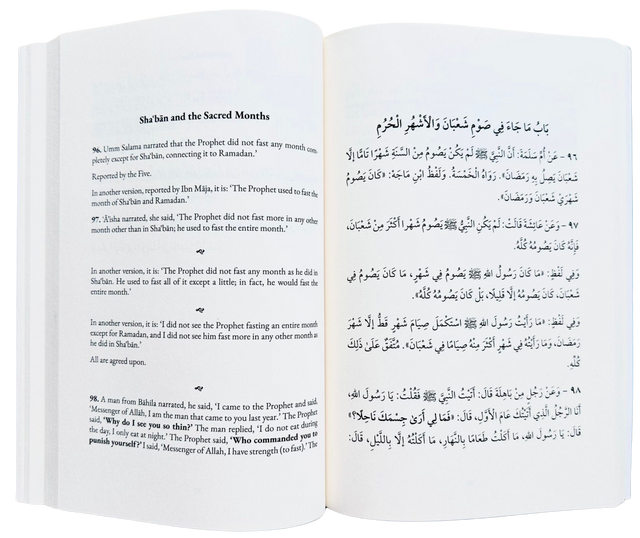 Sha'bān and the Sacred Months
96. Umm Salama narrated that the Prophet did not fast any month com-
pletely except for Sha'bān, connecting it to Ramadan.'
Reported by the Five.
In another version, reported by Ibn Māja, it is: 'The Prophet used to fast
the month of Sha'bān and Ramadan.'
97. 'Ā'isha narrated, she said, 'The Prophet did not fast more in any other
month other than in Sha'bān; he used to fast the entire month.'
In another version, it is: 'The Prophet did not fast any month as he did in
Sha'bān. He used to fast all of it except a little; in fact, he would fast the
entire month.'
In another version, it is: 'I did not see the Prophet fasting an entire month
except for Ramadan, and I did not see him fast more in any other month as
he did in Sha'bān.'
All are agreed upon.
98. A man from Bāhila narrated, he said, 'I came to the Prophet and said,
'Messenger of Allah, I am the man that came to you last year.' The Prophet
said, 'Why do I see you so thin?' The man replied, 'I do not eat during
the day, I only eat at night.' The Prophet said, 'Who commanded you to
punish yourself?' I said, 'Messenger of Allah, I have strength (to fast).' The
بَابُ مَا جَاءَ فِي صَوْمِ شَعْبَانَ وَالْأَشْهُرِ الْحُرُمِ
٩٦ - عَنْ أُمِّ سَلَمَةَ: أَنَّ النَّبِيَّ ﷺ لَمْ يَكُنْ يَصُومُ مِنَ السَّنَةِ شَهْرًا تَامًّا إِلَّا
شَعْبَانَ يَصِلُ بِهِ رَمَضَانَ». رَوَاهُ الْخَمْسَةُ. وَلَفْظُ ابْنِ مَاجَهْ: «كَانَ يَصُومُ
شَهْرَيْ شَعْبَانَ وَرَمَضَانَ».
٩٧ - وَعَنْ عَائِشَةَ قَالَتْ: لَمْ يَكُنِ النَّبِيُّ ﷺ يَصُومُ شَهْرًا أَكْثَرَ مِنْ شَعْبَانَ،
فَإِنَّهُ كَانَ يَصُومُهُ كُلَّهُ.
وَفِي لَفْظٍ: «مَا كَانَ رَسُولُ اللهِ ﷺ يَصُومُ فِي شَهْرٍ، مَا كَانَ يَصُومُ فِي
شَعْبَانَ، كَانَ يَصُومُهُ إِلَّا قَلِيلًا، بَلْ كَانَ يَصُومُهُ كُلَّهُ».
وَفِي لَفْظٍ: «مَا رَأَيْتُ رَسُولَ اللهِ ﷺ اسْتَكْمَلَ صِيَامَ شَهْرٍ قَطُّ إِلَّا شَهْرَ
رَمَضَانَ، وَمَا رَأَيْتُهُ فِي شَهْرٍ أَكْثَرَ مِنْهُ صِيَامًا فِي شَعْبَانَ». مُتَّفَقٌ عَلَىٰ ذَلِكَ
كُلِّهِ.
٩٨ - وَعَنْ رَجُلٍ مِنْ بَاهِلَةَ قَالَ: أَتَيْتُ النَّبِيَّ ﷺ فَقُلْتُ: يَا رَسُولَ اللهِ،
أَنَا الرَّجُلُ الَّذِي أَتَيْتُكَ عَامَ الْأَوَّلِ، قَالَ: «فَمَا لِي أَرَىٰ جِسْمَكَ نَاحِلًا؟»
قَالَ: يَا رَسُولَ اللهِ، مَا أَكَلْتُ طَعَامًا بِالنَّهَارِ، مَا أَكَلْتُهُ إِلَّا بِاللَّيْلِ، قَالَ: